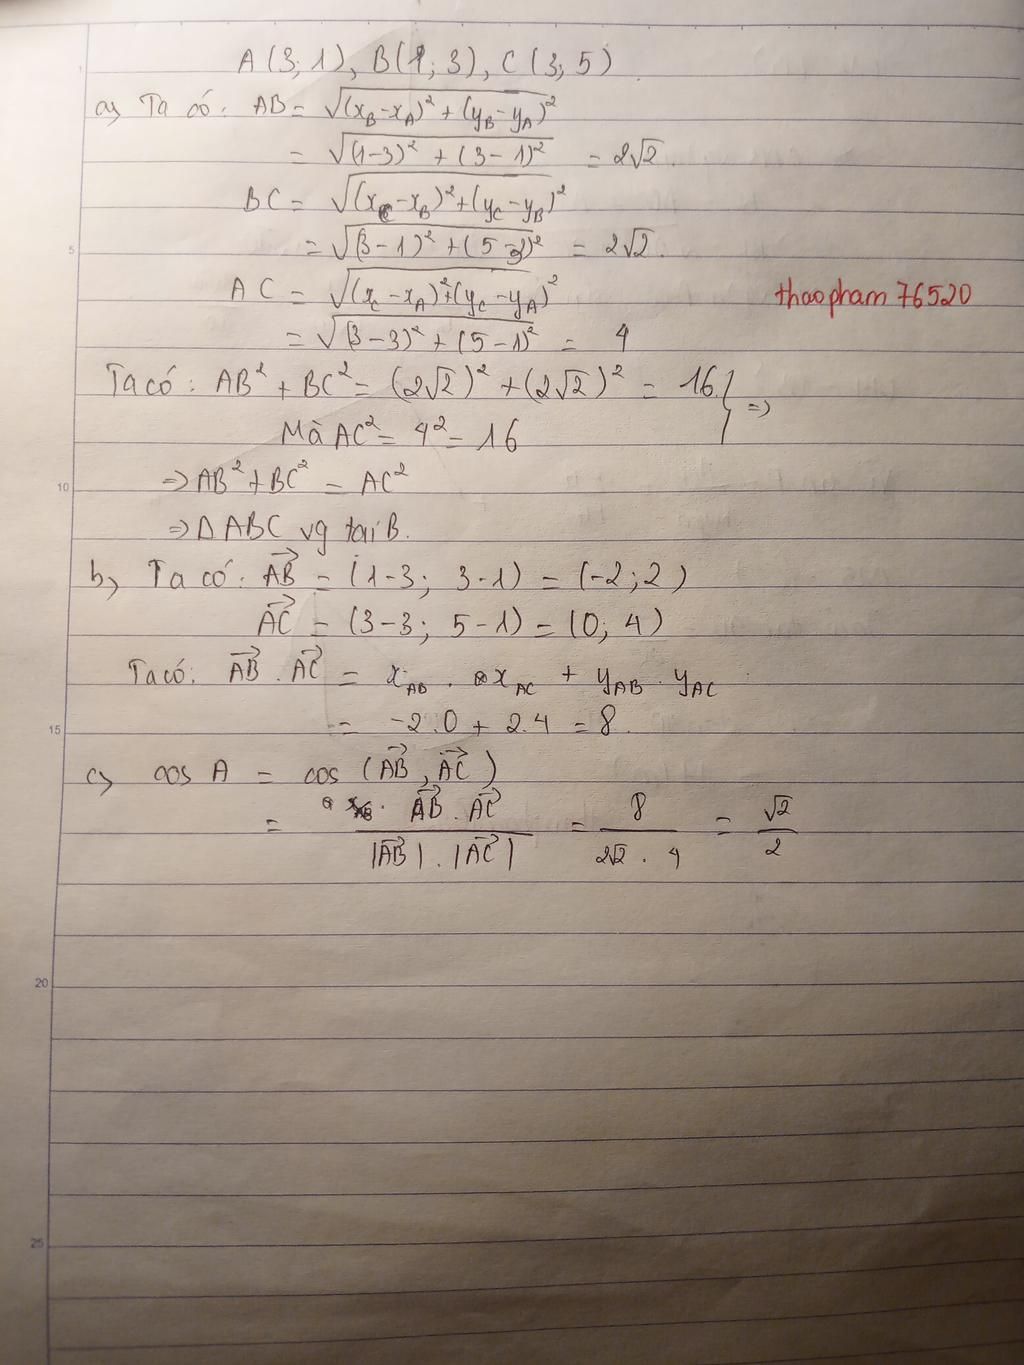 A(3; 1), B(1; 3), C(3; 5)
a, Ta có: AB = √((x_B - x_A)² + (y_B - y_A)²)
= √((1-3)² + (3-1)²) = 2√2.
BC = √((x_C - x_B)² + (y_C - y_B)²)
= √((3-1)² + (5-3)²) = 2√2.
AC = √((x_C - x_A)² + (y_C - y_A)²)
thaopham76520
= √((3-3)² + (5-1)²) = 4
Ta có: AB² + BC² = (2√2)² + (2√2)² = 16 } =>
Mà AC² = 4² = 16
=> AB² + BC² = AC²
=> Δ ABC vg tại B.
b, Ta có: →AB = (1-3; 3-1) = (-2; 2)
→AC = (3-3; 5-1) = (0; 4)
Ta có: →AB . →AC = x_AB . x_AC + y_AB . y_AC
= -2.0 + 2.4 = 8
c, cos A = cos (→AB, →AC)
= (→AB . →AC) / (|→AB| . |→AC|) = 8 / (2√2 . 4) = √2 / 2
5
10
15
20
25